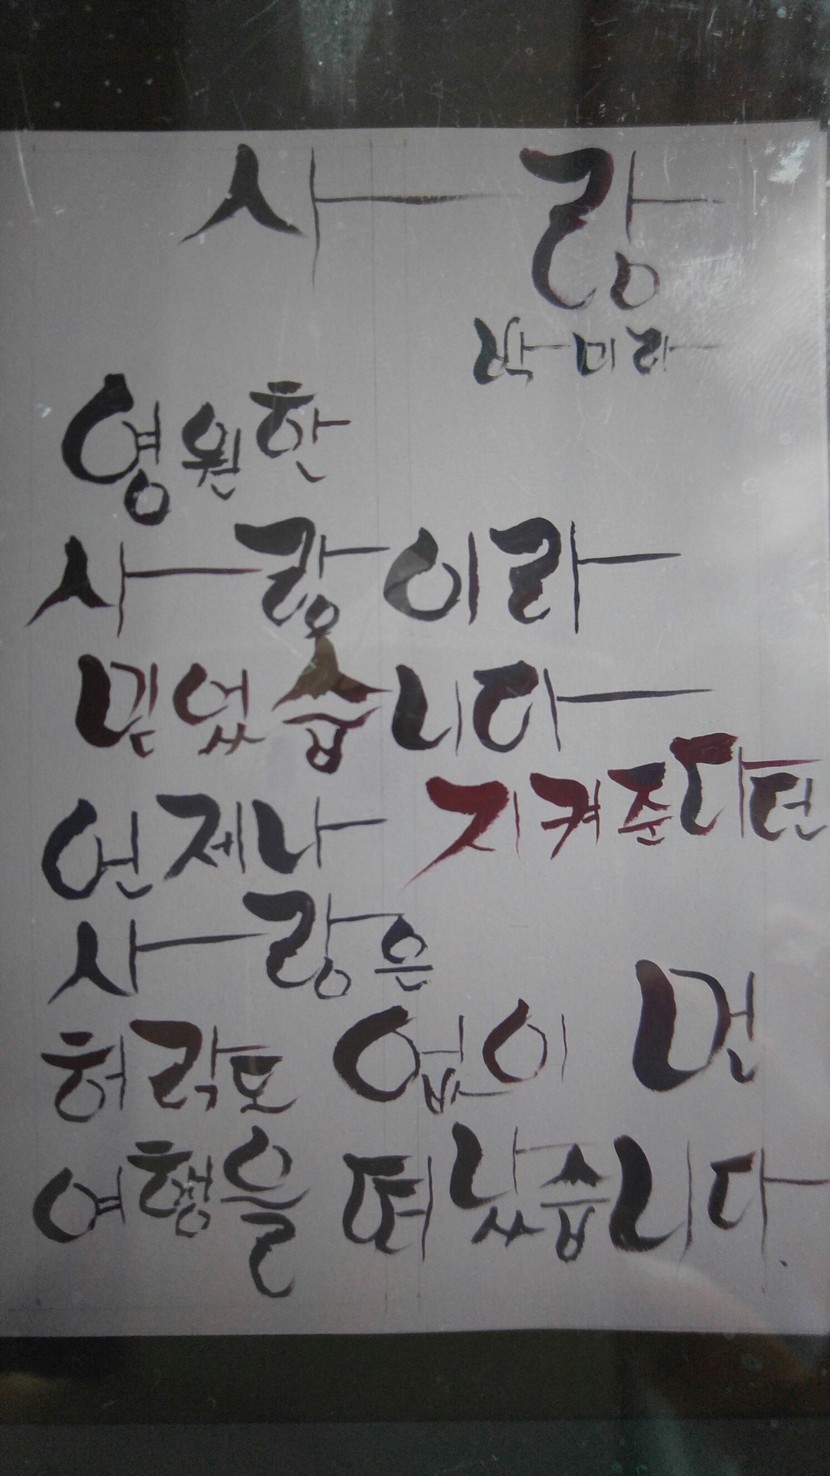 사랑
박미라
영원한
사랑이라
믿었습니다
언제나 지켜준다던
사랑은
허락도 없이 먼
여행을 떠났습니다.